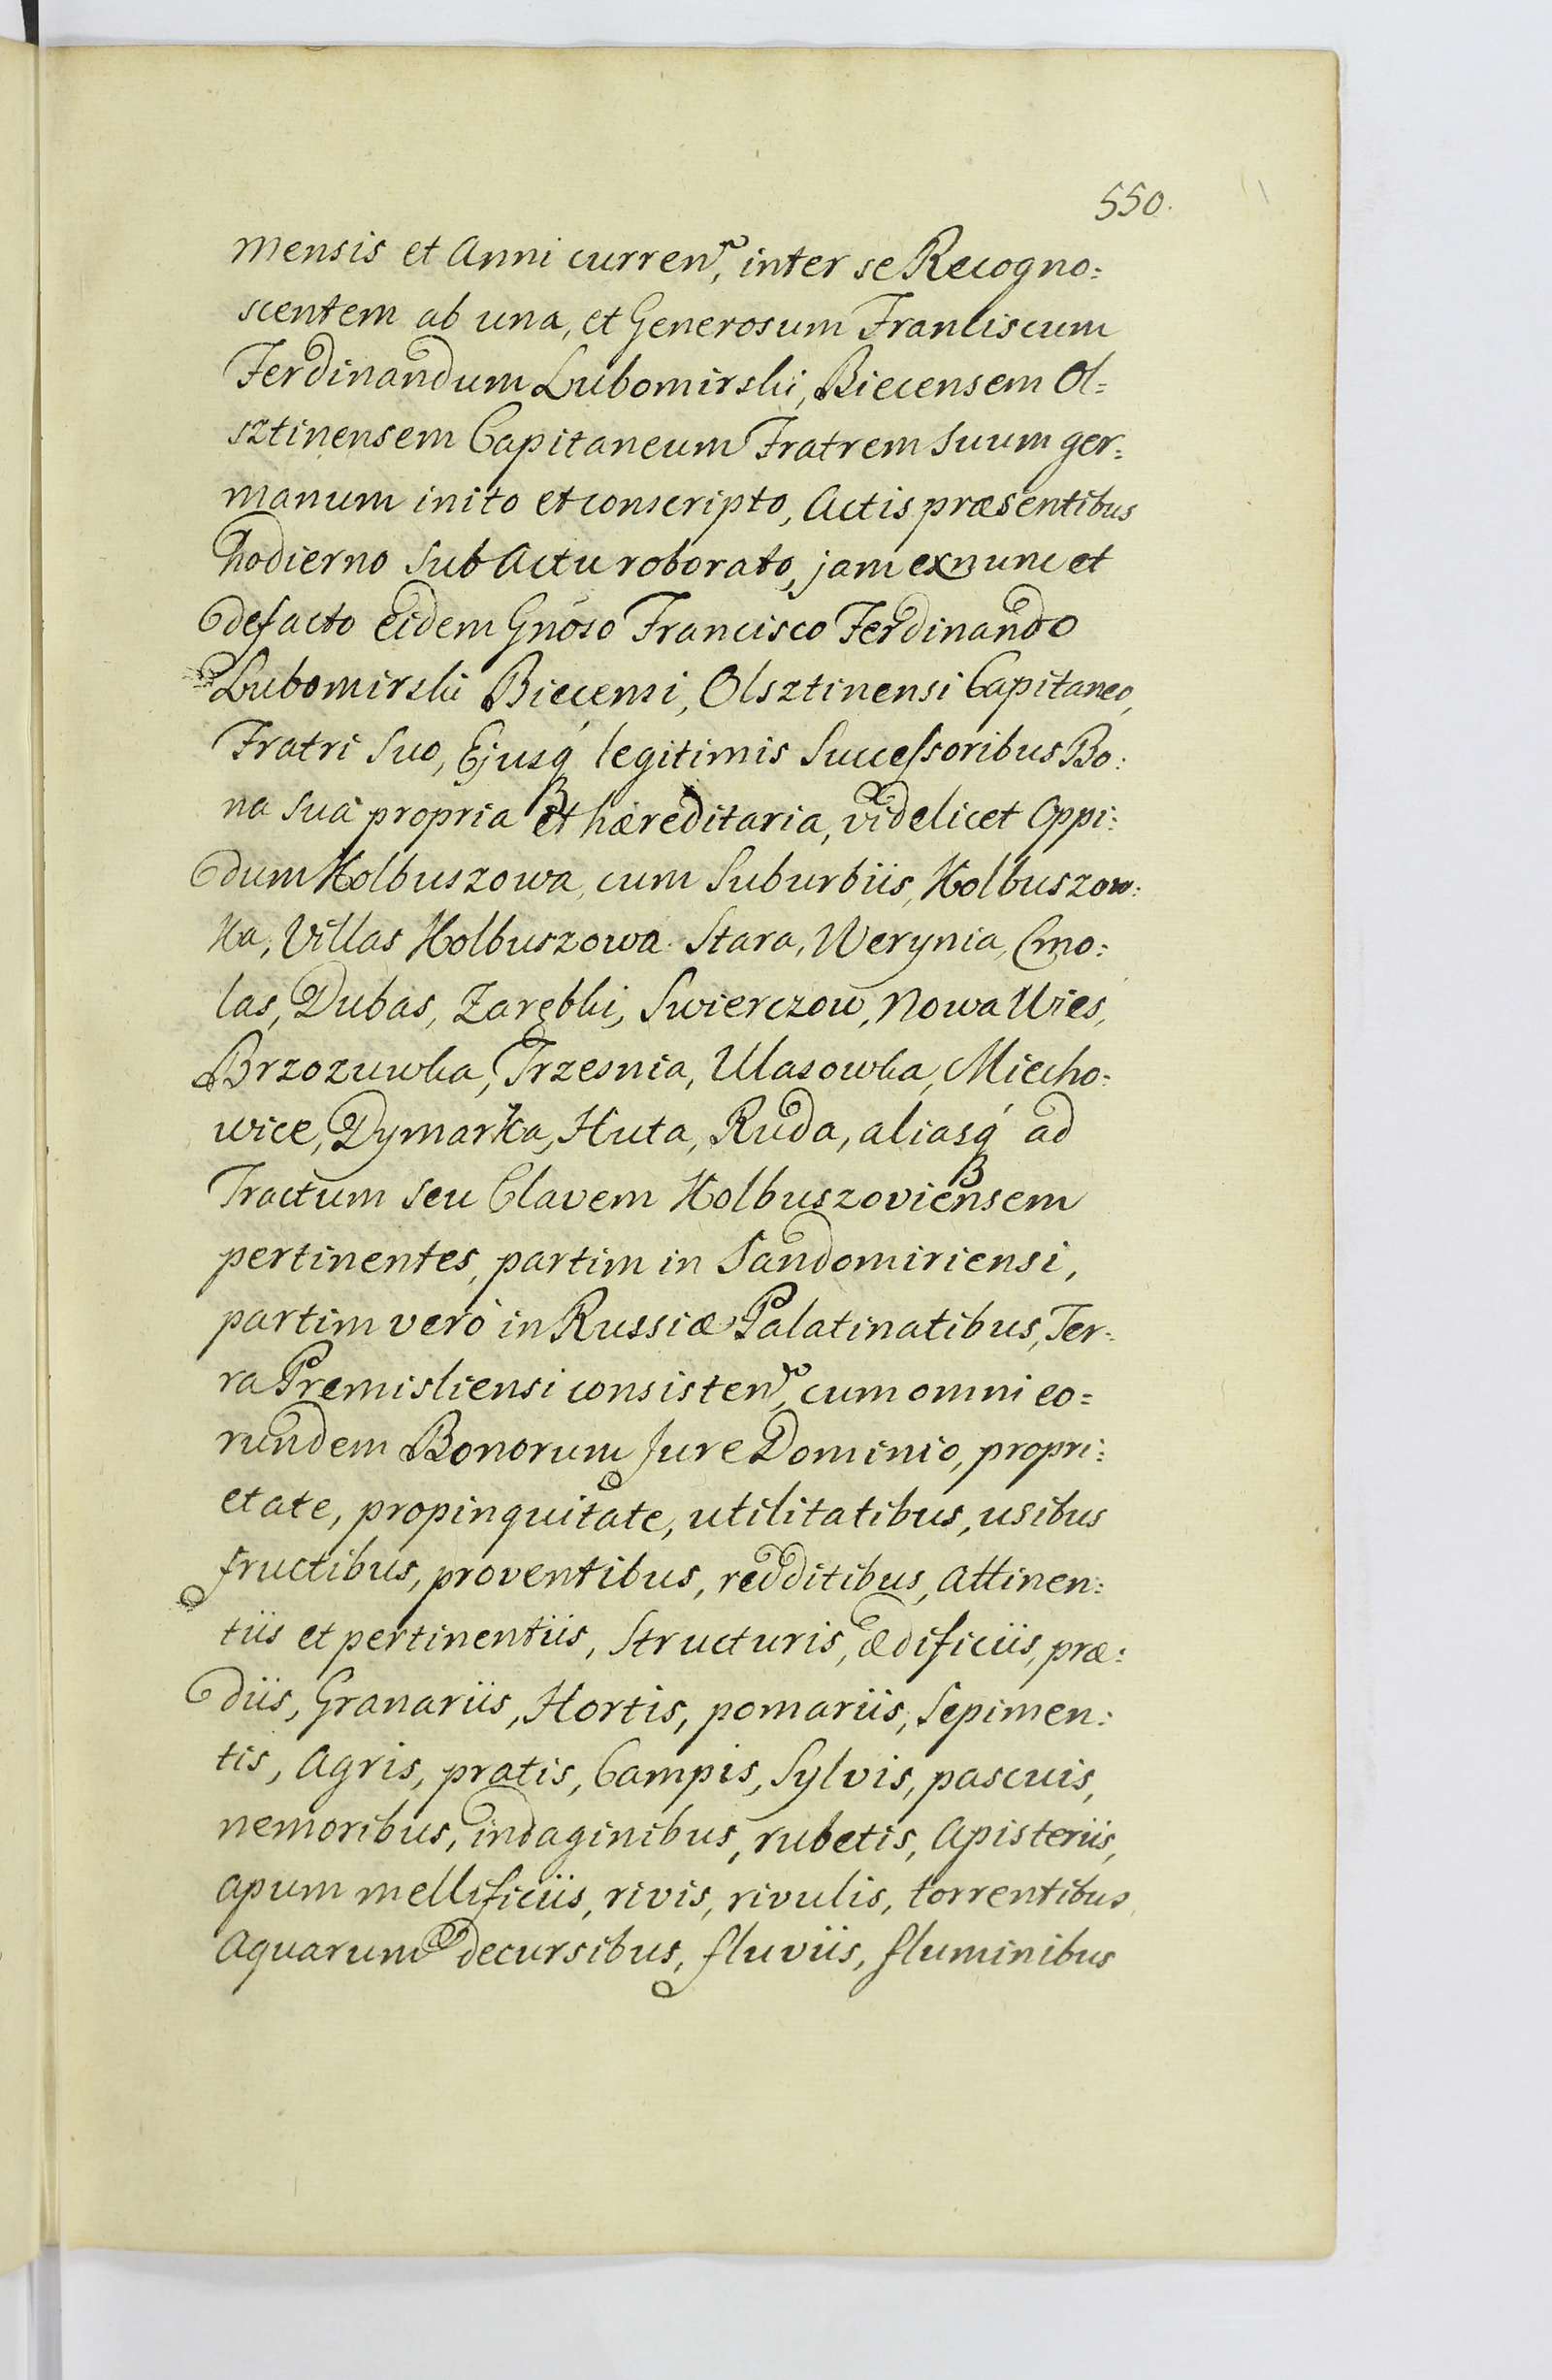 550.
mensis et Anni curren, inter se Recogno:
scentem ab una, et Generosum Franciscum
Ferdinandum Lubomirski, Biecensem Ol=
sztinensem Capitaneum Fratrem Suum ger:
manum inito et conscripto, Actis præsentibus
hodierno Sub Actu roborato, jam ex nunc et
de facto eidem Gnoso Francisco Ferdinando
Lubomirski Biecensi, Olsztinensi Capitaneo,
Fratri Suo, Ejusq́ legitimis Successoribus Bo:
na Sua propria et hæreditaria, videlicet Oppi:
dum Kolbuszowa, cum Suburbiis, Kolbuszow:
ka, Villas Kolbuszowa Stara, Werynia, Cmo:
las, Dubas, Zarębki, Swierczow, Nowa Wies,
Brzozuwka, Trzesnia, Wlasowka, Miecho:
wice, Dymarka, Huta, Ruda, aliasq́ ad
Tractum seu Clavem Kolbuszoviensem
pertinentes, partim in Sandomiriensi,
partim verò in Russiæ Palatinatibus, Ter:
ra Premisliensi consisten, cum omni eo=
rundem Bonorum Jure Dominio, propri:
etate, propinquitate, utilitatibus, usibus
fructibus, proventibus, redditibus, attinen:
tiis et pertinentiis, Structuris, ædificiis, præ:
diis, Granariis, Hortis, pomariis, Sepimen:
tis, Agris, pratis, Campis, Sylvis, pascuis,
nemoribus, indaginibus, rubetis, Apisteriis,
apum mellificiis, rivis, rivulis, torrentibus
Aquarum decursibus, fluviis, fluminibus